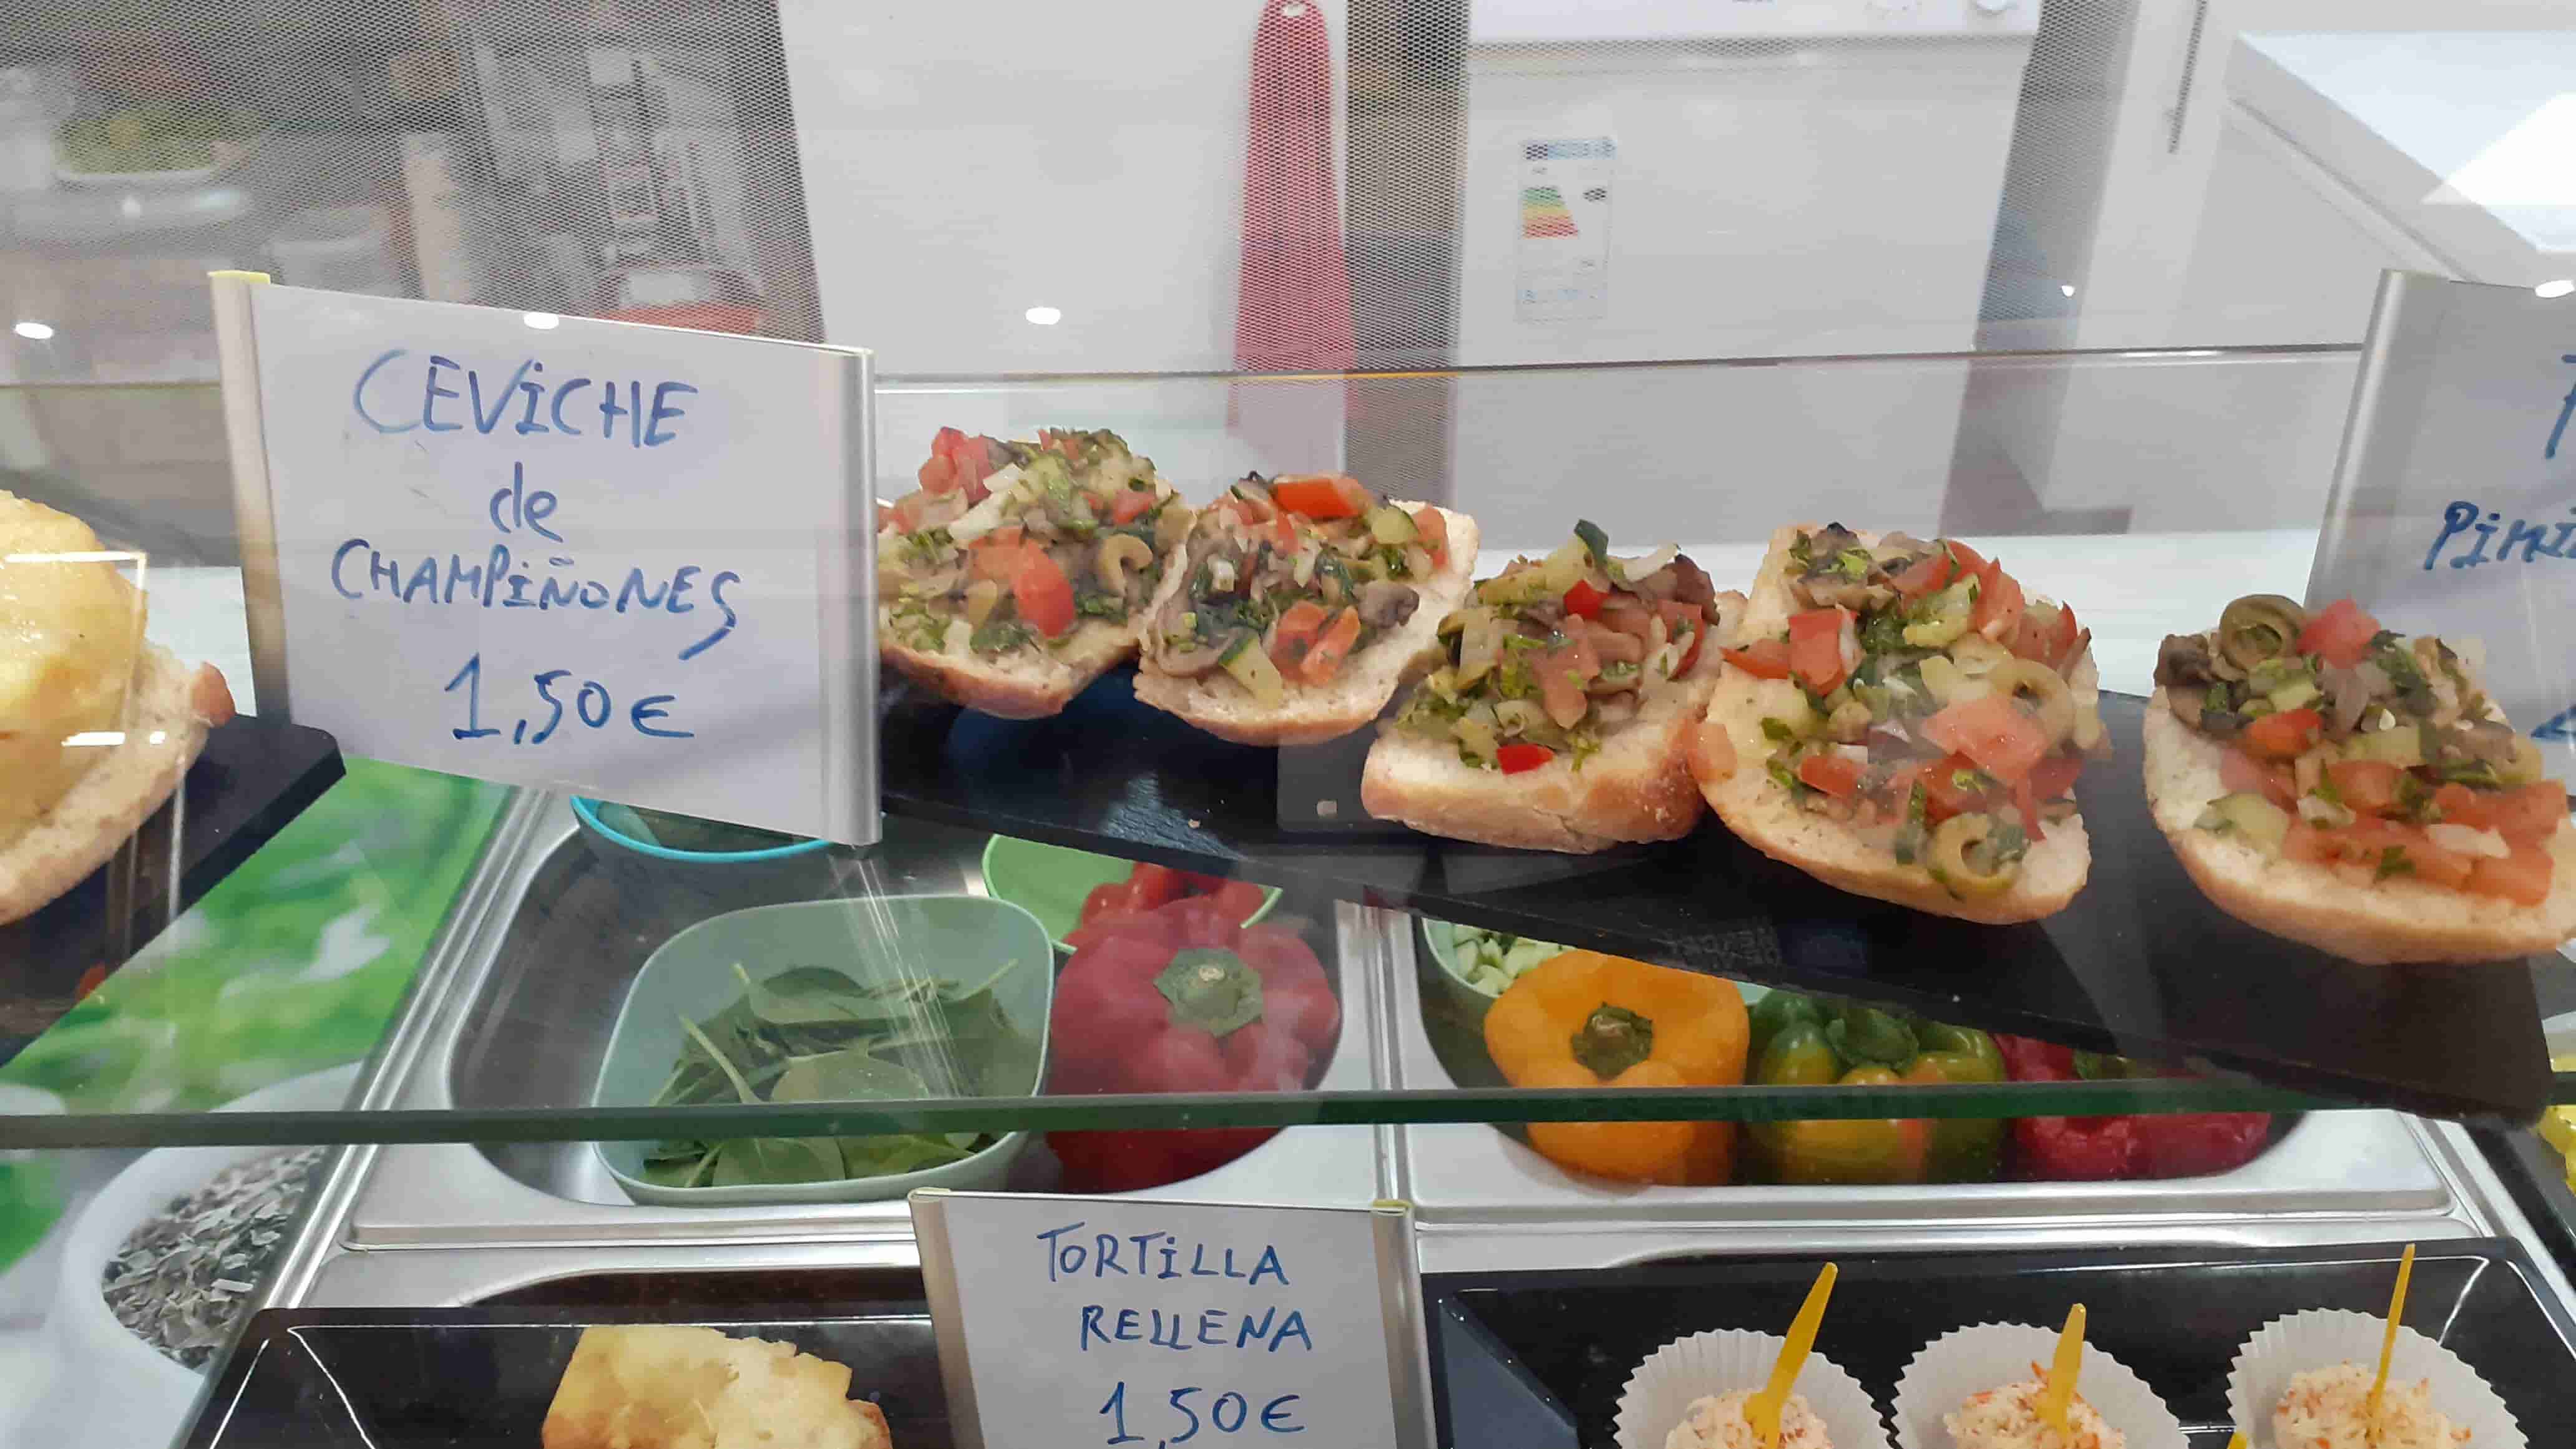 CEVICHE
de
CHAMPIÑONES
1,50€
TORTILLA
RELLENA
1,50€